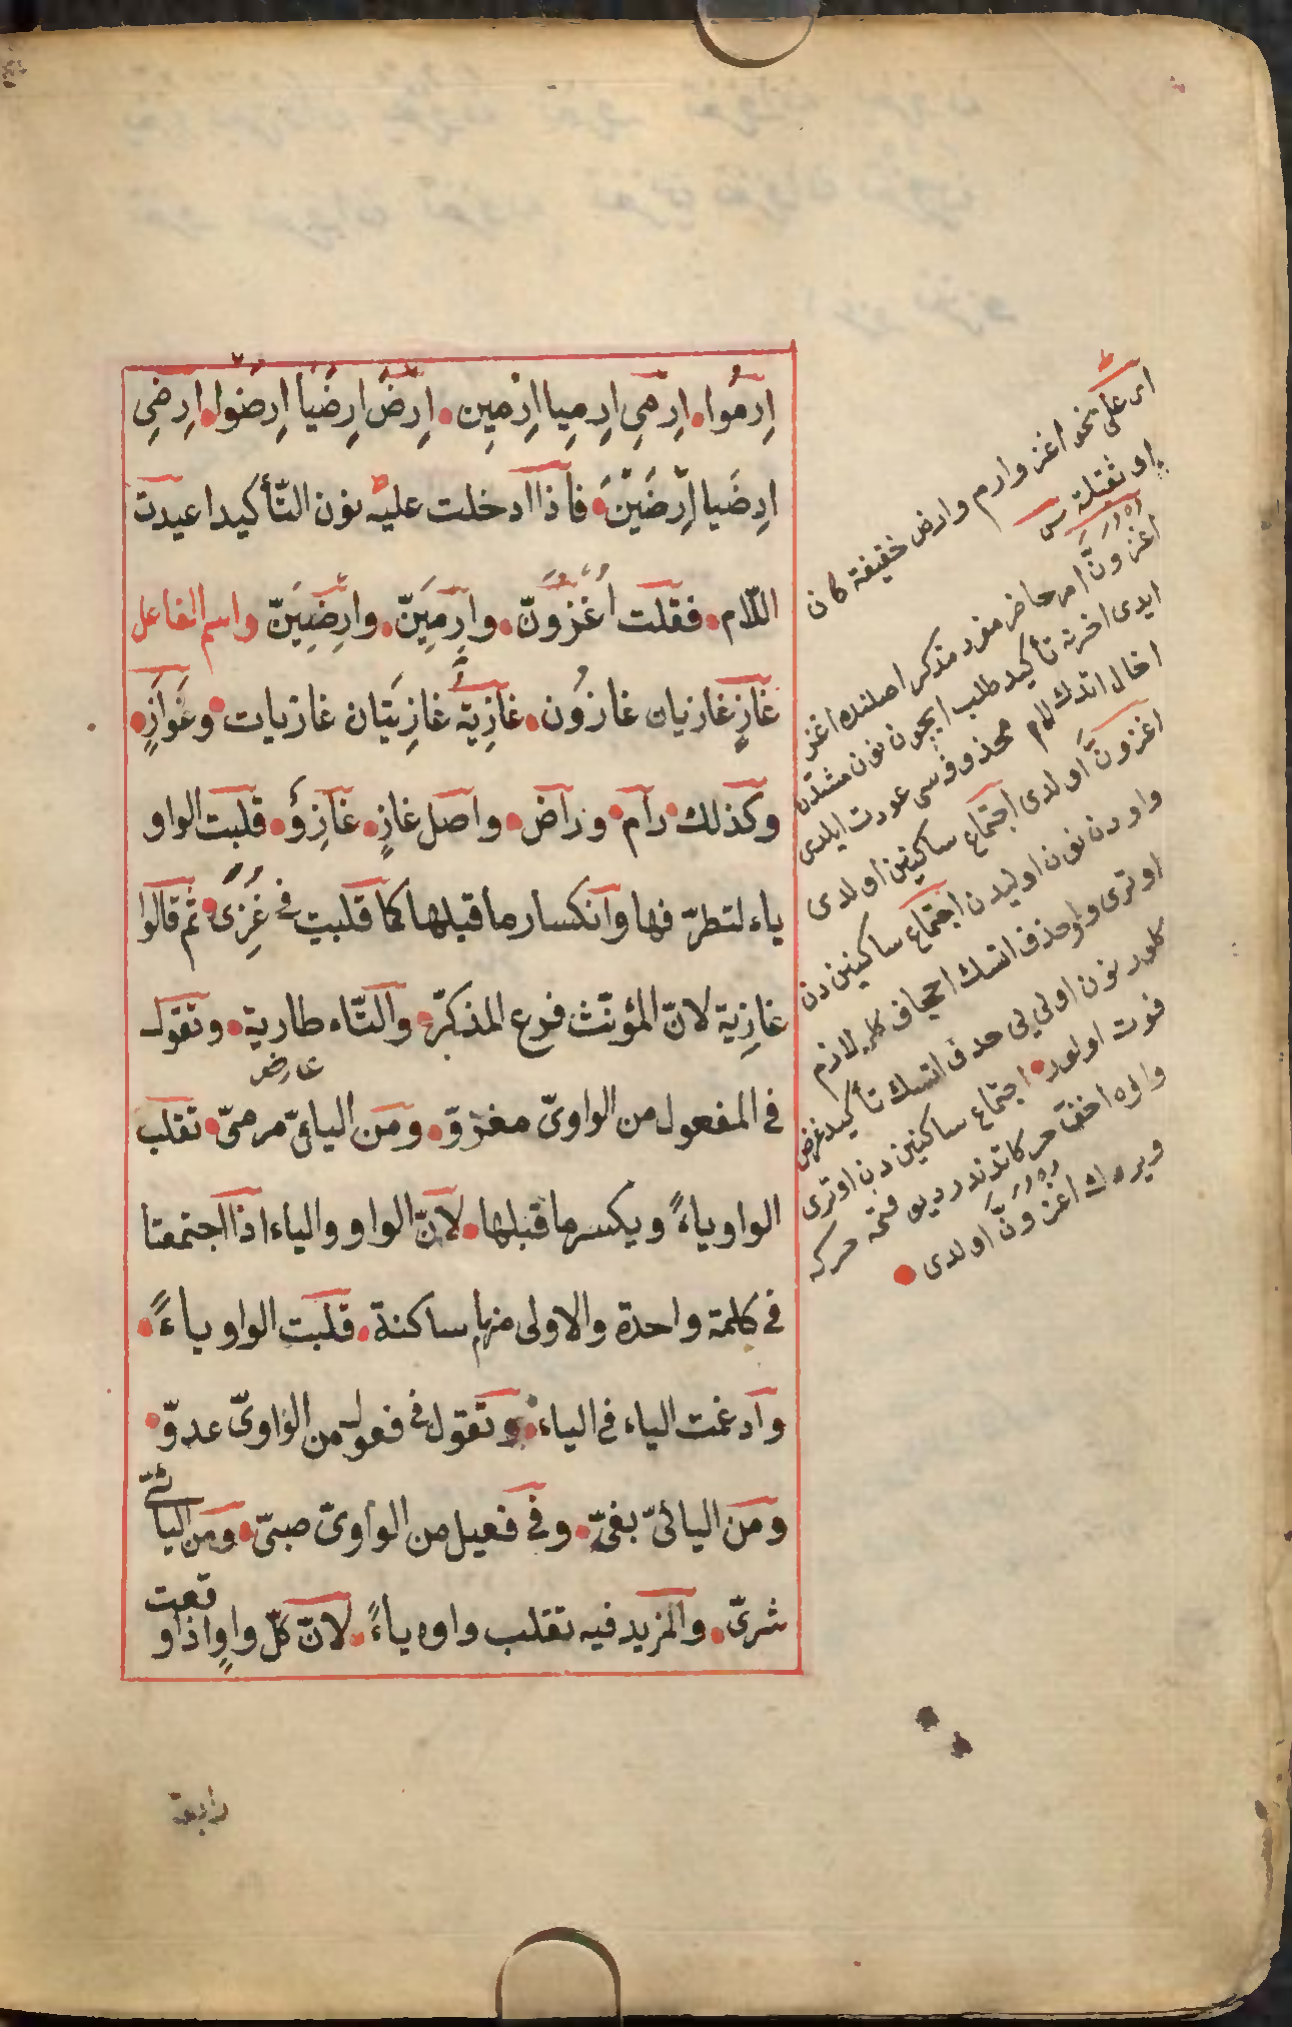 اِرمُوا. اِرمِى اِرمِيا اِرمِين. اِرضَ اِرضَيا اِرضَوا. اِرضِى
اِرضَيا اِرضَيْنَ. فاذا ادخلت عليه نون التّأكيد اعيدت
اللّام. فقلت اُغزُوَنّ. وارمِيَنّ. وارضَيَنّ واسم الفاعل
غازٍ غازيان غازُون. غازِيَة غازِيَتان غازيات. وغَوازٍ.
وكذلك. رام. وراض. واصل غازٍ. غازِوٌ. قلبت الواو
ياء لتطرّفها وانكسار ما قبلها كما قلبت فى غُزِىَ. ثم قالوا
غازِية لانّ المؤنّث فرع المذكّر. والتّاء طارية. وتقول
عارض
فى المفعول من الواوىّ مغزوّ. ومن اليائىّ مرمىّ. تقلب
الواو ياءً ويكسر ما قبلها. لانّ الواو والياء اذا اجتمعتا
فى كلمة واحدة والاولى منهما ساكنة. قلبت الواو ياءً.
وادغمت الياء فى الياء. وتقول فى فعول من الواوىّ عدوّ.
ومن اليائىّ بغىّ. وفى فعيل من الواوىّ صبىّ. ومن اليائىّ
شرىّ. والمزيد فيه تقلب واوه ياءً. لانّ كلّ واوٍ اذا وقعت
رابعة
اى على نحو اغز وارم وارض خفيفة كان
او ثقيلة
اغزونّ امر حاضر مفرد مذكر اصلنده اغز
ايدى اخرنه تأكيد طلب ايچون نون مشدده
ادخال اتدك لام محذوفسى عودت ايلدى
اغزونّ اولدى اجتماع ساكنين اولدى
واودن نون اوليدن اجتماع ساكنين دن
اوترى واو حذف اتسك اجحاف كلمه لازم
كلور نون اوليى حذف اتسك تأكيد غرض
فوت اولور. اجتماع ساكنين دن اوترى
واوه اخفّ حركاتدندر ديو فتحه حركه
ويردك اغزونّ اولدى.